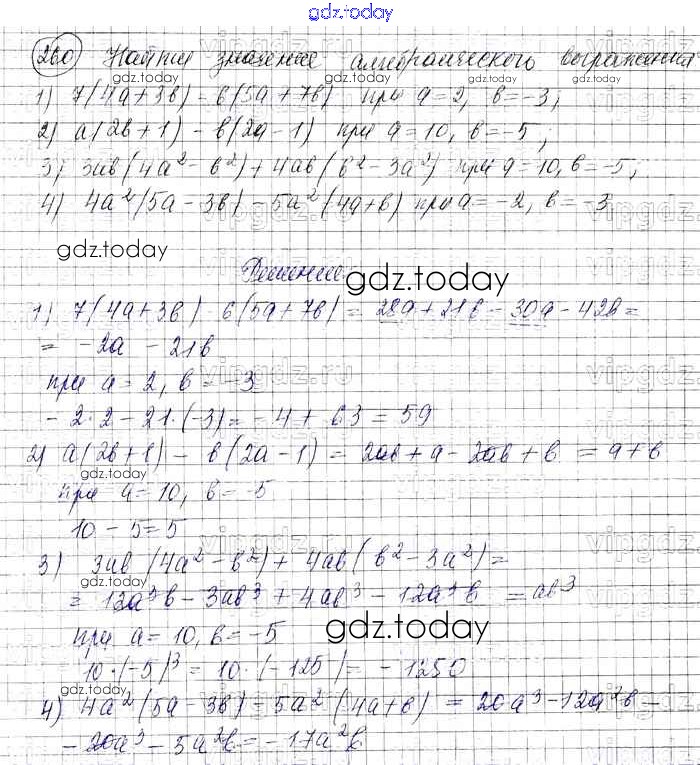 gdz.today
260 Найти значение алгебраического выражения
gdz.today gdz.today gdz.today
1) 7(4a+3в) - 6(5a+7в) при a=2, в=-3;
2) a(2в+1) - в(2a-1) при a=10, в=-5;
3) 3aв(4a² - в²) + 4aв(в² - 3a²) при a=10, в=-5;
4) 4a²(5a-3в) - 5a²(4a+в) при a=-2, в=-3
gdz.today
Решение
gdz.today
1) 7(4a+3в) - 6(5a+7в) = 28a+21в - 30a - 42в =
= -2a - 21в
vipgdz.ru
при a=2, в=-3
-2·2-21·(-3)=-4+63=59
2) a(2в+1) - в(2a-1) = 2aв+a-2aв+в = a+в
gdz.today
при a=10, в=-5
10-5=5
3) 3aв(4a²-в²)+4aв(в²-3a²)=
gdz.today
= 12a³в-3aв³+4aв³-12a³в = aв³
при a=10, в=-5
gdz.today
10·(-5)³=10·(-125)=-1250
gdz.today
4) 4a²(5a-3в)-5a²(4a+в) = 20a³-12a²в-
-20a³-5a²в=-17a²в